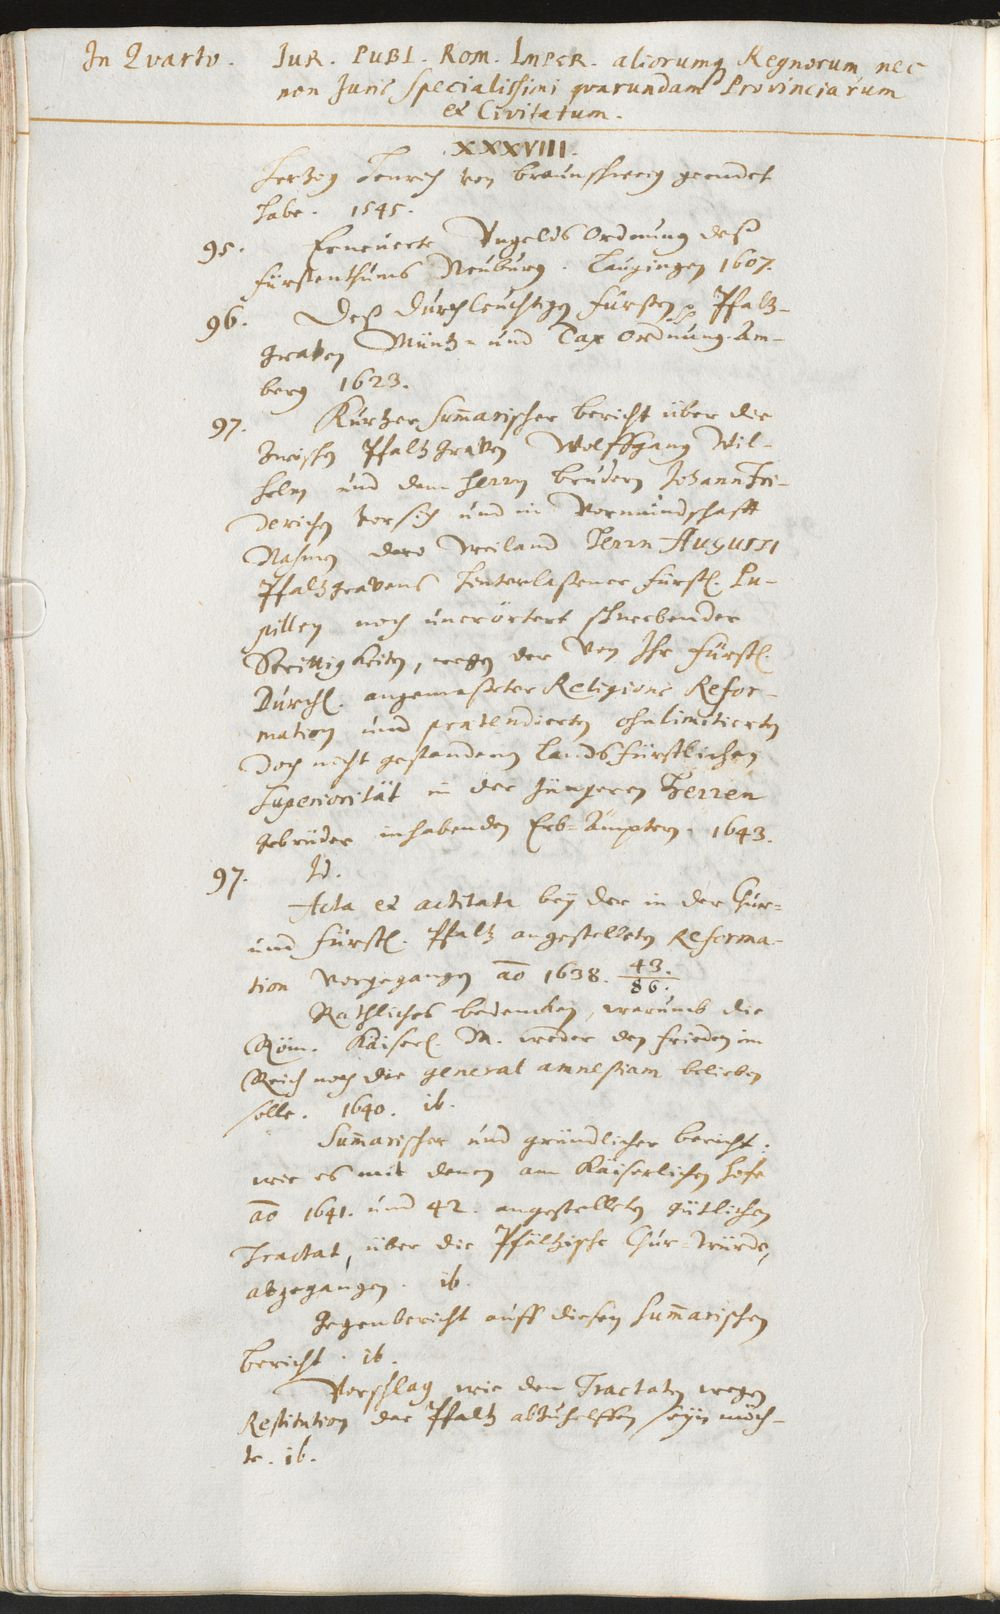 In Quarto. JUR. PUBL. ROM. IMPER. aliorumq Regnorum nec
non Juris specialissimi quarundam Provinciarum
et Civitatum.
XXXVIII.
Hertzog Henrich von Braunschweig geendet
habe. 1545.
95. Erneuerte Ungelds Ordnung deß
Fürstenthums Neuburg. Laugingen 1607.
96. Deß Durchleuchtigen Fürsten Pfaltz-
graven Müntz- und Tax Ordnung. Am-
berg 1623.
97. Kurtzer Summarischer bericht über die
zwischen Pfaltzgraven Wolffgang Wil-
helm und dem Herrn brudern Johann Fri-
derichen vor sich und in Vormundschafft
Nahmen dero weiland Herrn AUGUSTI
Pfaltzgravens hinterlaßener Fürstl. Pu-
pillen noch unerörtert schwebender
Strittigkeiten, wegen der von Ihr Fürstl.
Durchl. angemaßter Religions Refor-
mation und prætendierten ohnlimitierten
doch nicht gestandenen Landsfürstlichen
Superiorität in der jüngeren Herren
Gebrüder inhabenden Erb-Ämptern. 1643.
97. Id.
Acta et actitata bey der in der Chur-
und Fürstl. Pfaltz angestellten Reforma-
tion vorgegangen ao 1638. 43.
86.
Rathliches bedencken, warumb die
Röm. Kaiserl. M. weder den Frieden im
Reich noch die general amnestiam belieben
solle. 1640. ib.
Summarischer und gründlicher bericht:
wie es mit denen am Käiserlichen Hofe
ao 1641. und 42. angestellten gütlichen
Tractat, über die Pfältzische Chur-Würde,
abgegangen. ib.
Gegenbericht auff diesen Summarischen
bericht. ib.
Vorschlag wie den Tractaten wegen
Restitution der Pfaltz abzuhelffen seyn möch-
te. ib.